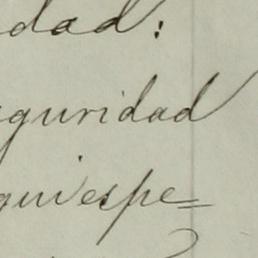 dad:
guridad
quiespe=